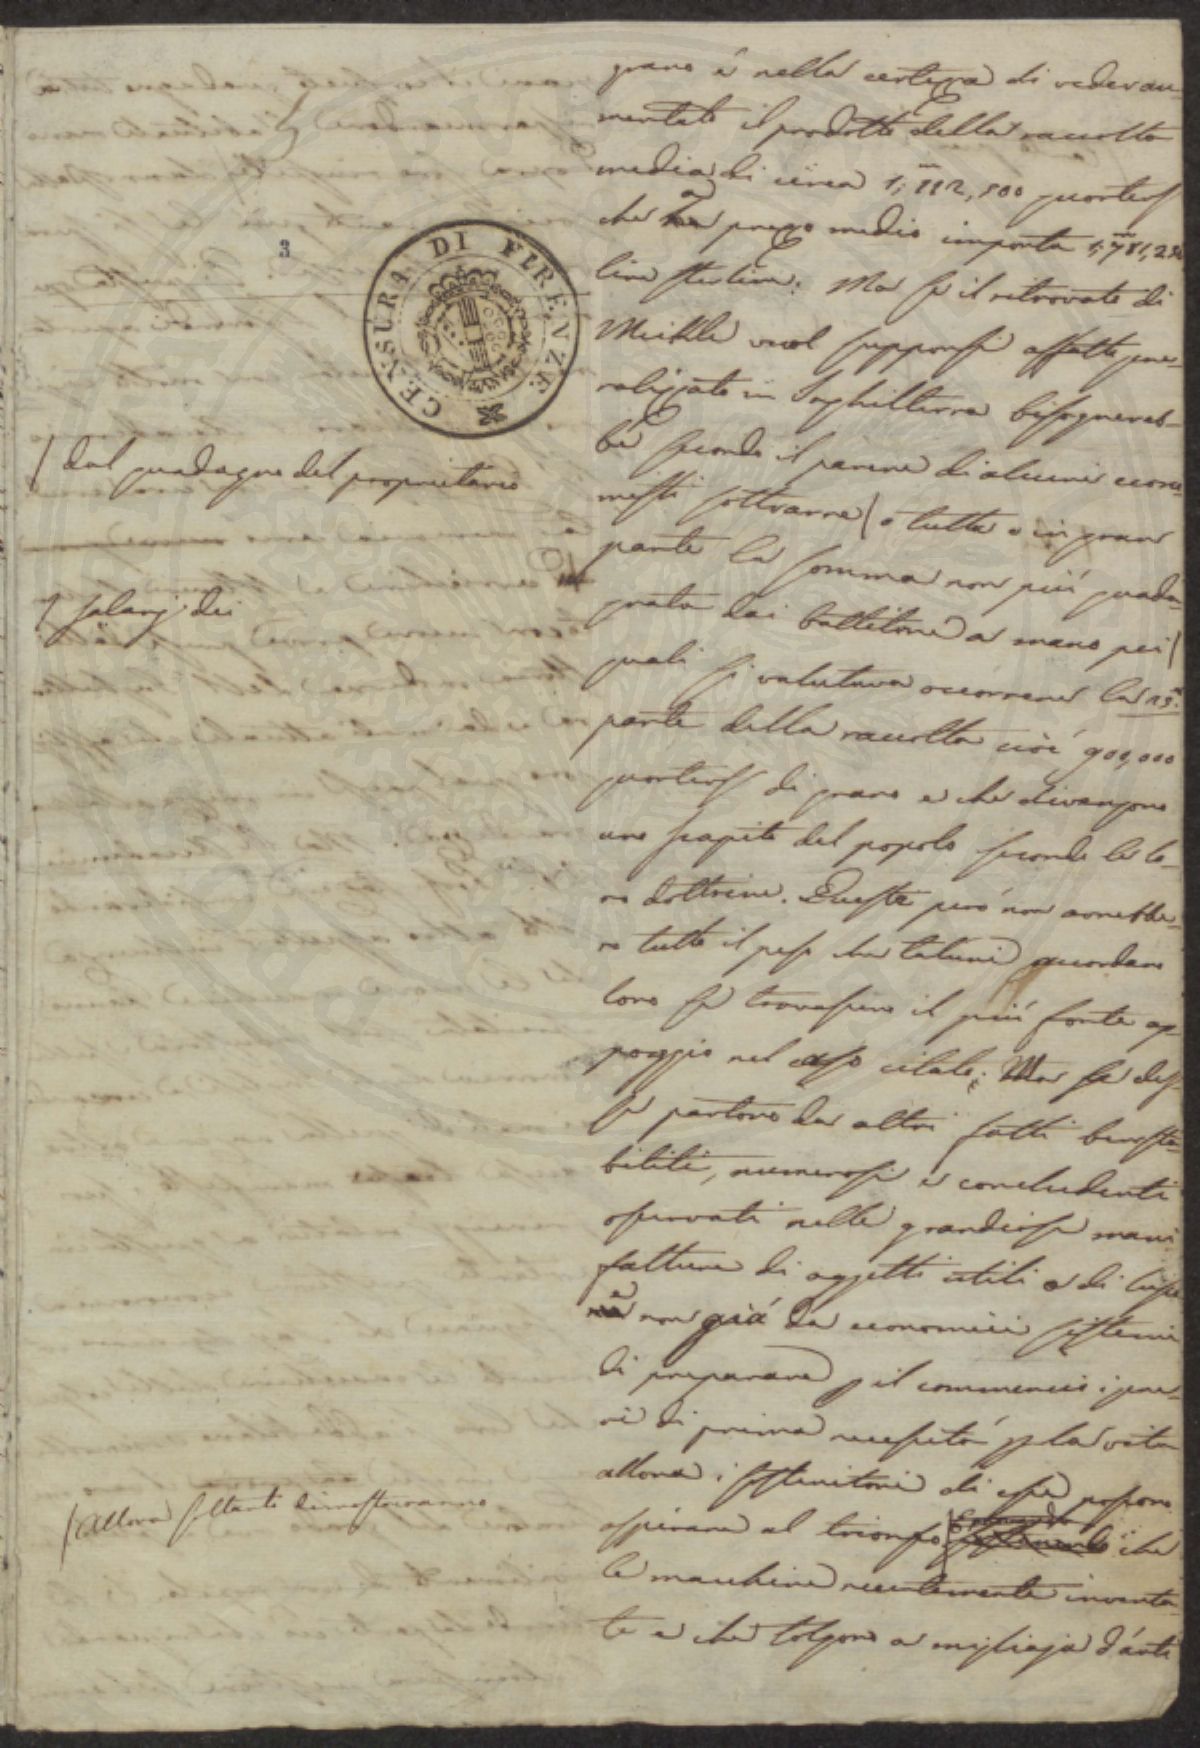 3
CENSURA DI FIRENZE
grano è nella certezza di veder au-
mentato il prodotto della raccolta
media di circa 1,112,500 quarters
che a prezzo medio importa
lire sterline: Ma se il ritrovato di
Meikle vuol supporsi affatto gene-
ralizzato in Inghilterra bisognereb-
be secondo il parere di alcuni econo-
misti sottrarre/ o tutta o in gran
/ dal guadagno del proprietario
parte la somma non più guada-
gnata dai battitori a mano pei/
/ salarj dei
quali si valutava occorrere la 15.a
parte della raccolta cioè 900,000
quarters di grano e che divengono
uno scapito del popolo secondo le lo-
ro dottrine. Queste però non avrebbe-
ro tutto il peso che taluni accordano
loro se trovassero il più forte ap-
poggio nel caso citato; Ma se des-
se partono da altri fatti bensta-
biliti, numerosi e concludenti
osservati nelle grandiose mani-
fatture di oggetti utili o di lusso
e non già da economici sistemi
di preparare p il commercio i gene-
ri di prima necessità p la vita
allora i sostenitori di esse possono
aspirare al trionfo/ che
/ Allora soltanto dimostreranno
le macchine recentemente inventa-
te e che tolgono a migliaja d'arti